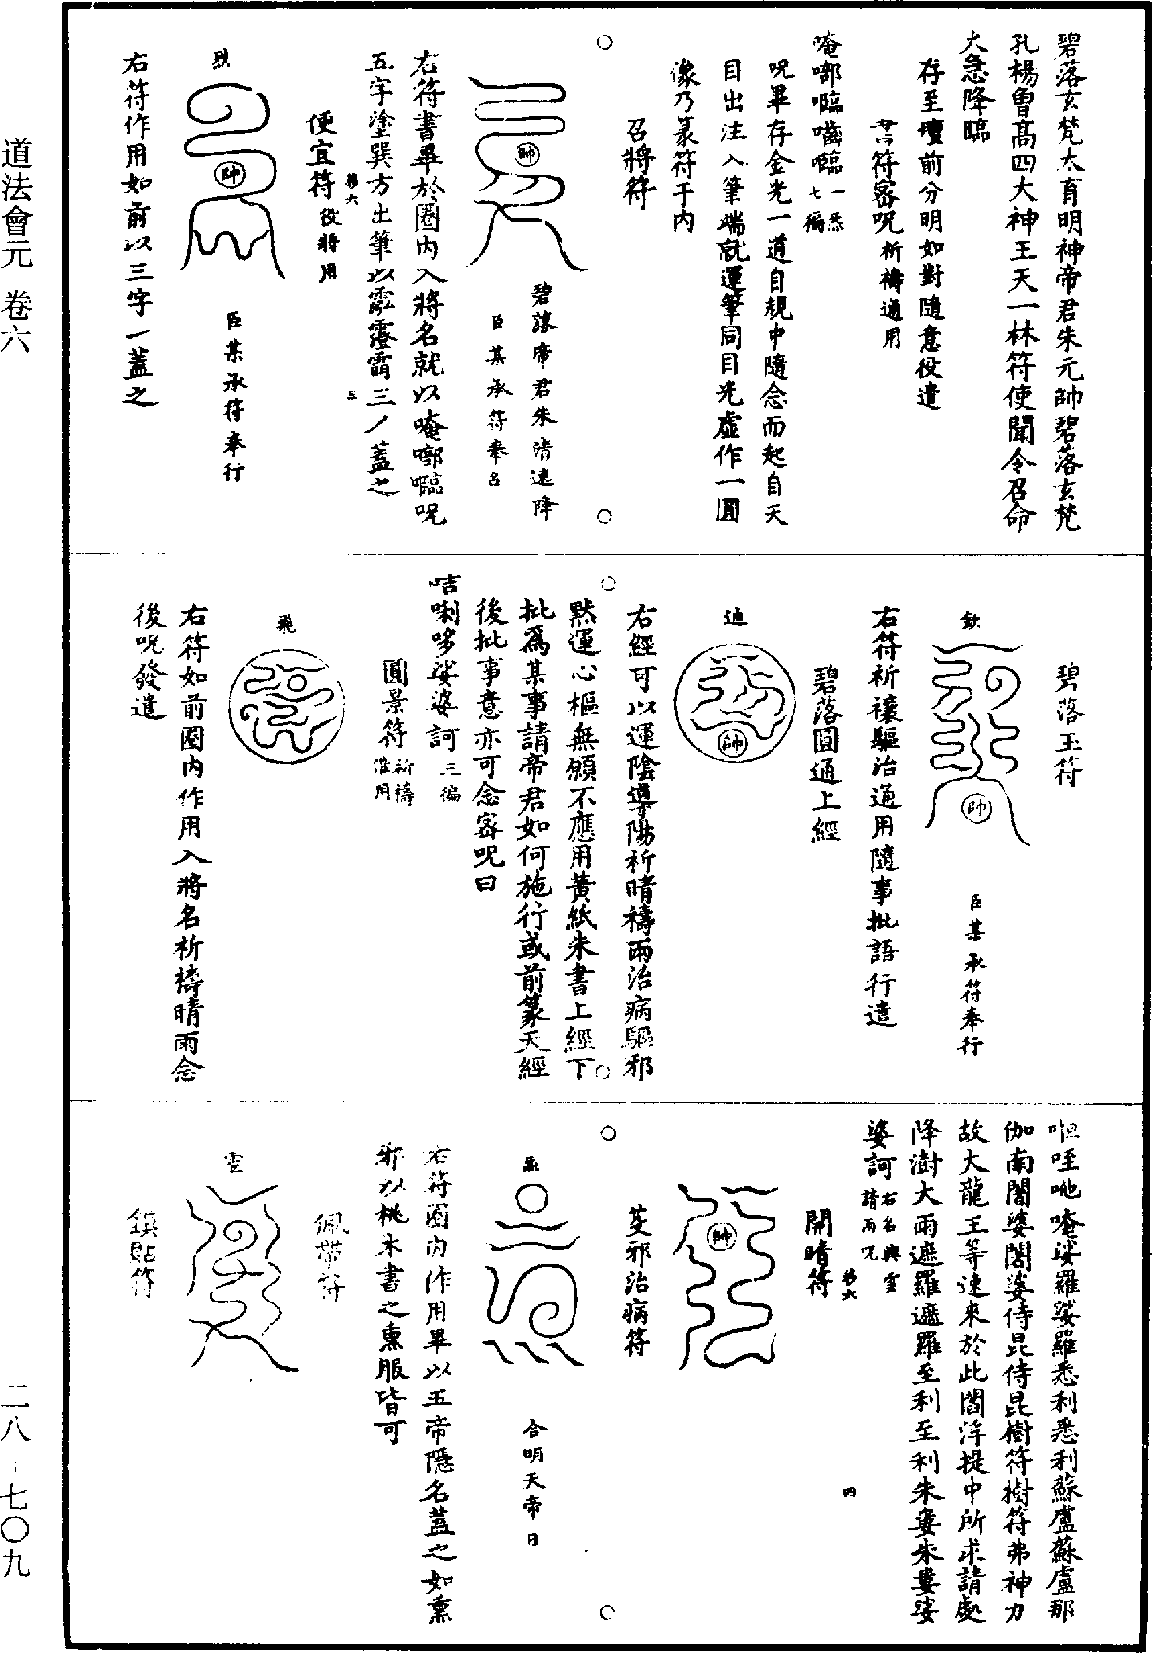 道法會元 卷六
二八-七〇九
碧落玄梵太育明神帝君朱元帥碧落玄梵
孔楊曾高四大神王天一林符使聞令召命
大急降臨
存至壇前分明如對隨意役遣
書符密呪祈禱通用
唵啣𡄯嚙𡄯一炁七徧
呪畢存金光一道自規中隨念而起自天
目出注入筆端就運筆同目光虛作一圓
像乃篆符于內
召將符
帥
碧落帝君朱清速降
臣某承符奉召
右符書畢於圈內入將名就以唵啣𡄯呪
五字塗巽方出筆以
三ノ蓋之
卷六
三
便宜符役將用
帥
臣某承符奉行
右符作用如前以三字一蓋之
碧落玉符
欽
帥
臣某承符奉行
右符祈禳驅治通用隨事批語行遣
碧落圓通上經
迪
帥
右經可以運陰導陽祈晴禱雨治病驅邪
默運心樞無願不應用黃紙朱書上經下
批爲某事請帝君如何施行或前篆天經
後批事意亦可念密呪曰
咭唎哆娑婆訶三徧
圓景符祈禱雜用
飛
右符如前圈內作用入將名祈禱晴雨念
後呪發遣
呬哇吔唵娑羅娑羅悉利悉利蘇盧蘇盧那
伽南闇婆闇婆侍昆侍昆樹符樹符弗神力
故大龍王等速來於此閻浮提中所求請處
降澍大雨遮羅遮羅至利至利朱婁朱婁娑
婆訶右名興雲請雨呪
卷六
四
開晴符
帥
芟邪治病符
合明天帝日
右符圈內作用畢以五帝隱名蓋之如熏
邪以桃木書之熏服皆可
佩帶符
雲
鎮貼符